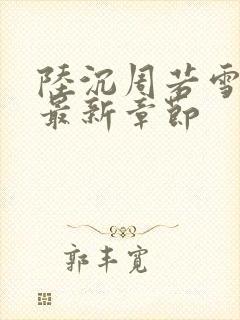 陸沉周若雪
最新章節
郭丰寬